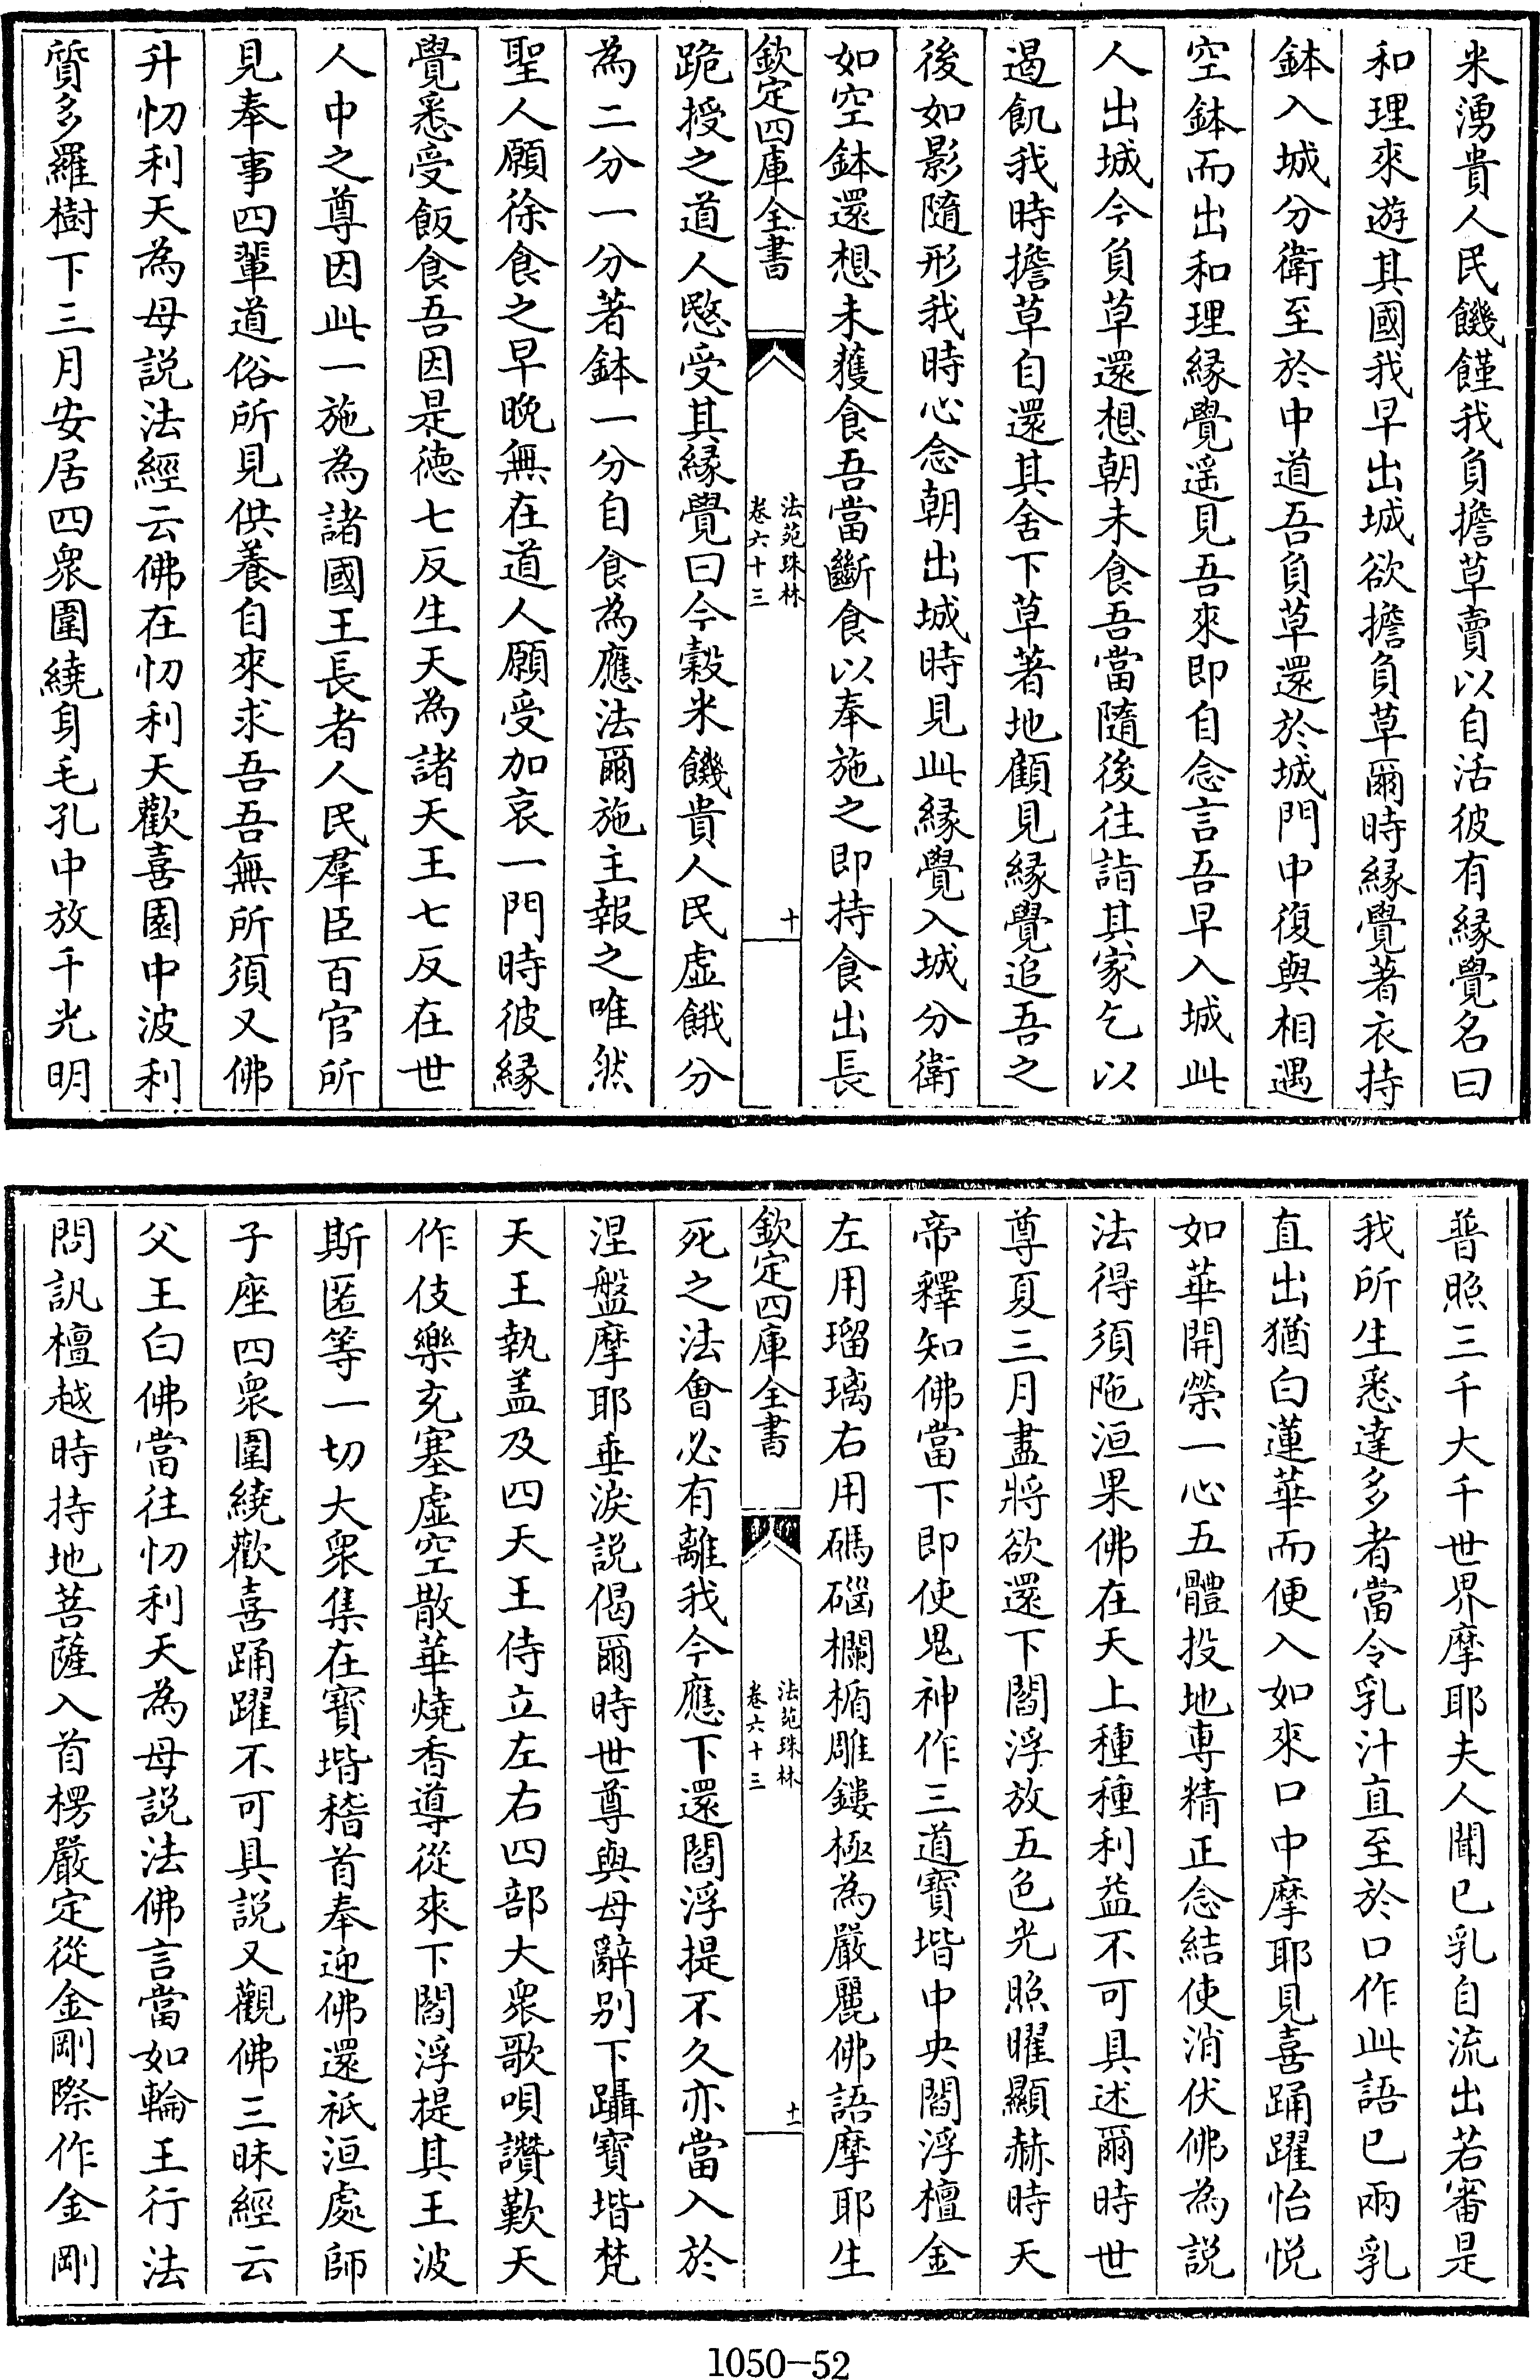 米湧貴人民饑饉我負擔草賣以自活彼有緣覺名曰
和理來遊其國我早出城欲擔負草爾時緣覺著衣持
鉢入城分衛至於中道吾負草還於城門中復與相遇
空鉢而出和理緣覺遥見吾來即自念言吾早入城此
人出城今負草還想朝未食吾當隨後往詣其家乞以
遏飢我時擔草自還其舍下草著地顧見緣覺追吾之
後如影隨形我時心念朝出城時見此緣覺入城分衛
如空鉢還想未獲食吾當斷食以奉施之即持食出長
欽定四庫全書
法苑珠林
卷六十三
十
跪授之道人愍受其緣覺曰今穀米饑貴人民虛餓分
為二分一分著鉢一分自食為應法爾施主報之唯然
聖人願徐食之早晚無在道人願受加哀一門時彼緣
覺悉受飯食吾因是德七反生天為諸天王七反在世
人中之尊因此一施為諸國王長者人民羣臣百官所
見奉事四輩道俗所見供養自來求吾吾無所須又佛
升忉利天為母說法經云佛在忉利天歡喜園中波利
質多羅樹下三月安居四衆圍繞身毛孔中放千光明
普照三千大千世界摩耶夫人聞已乳自流出若審是
我所生悉達多者當令乳汁直至於口作此語已兩乳
直出猶白蓮華而便入如來口中摩耶見喜踊躍怡悅
如華開榮一心五體投地專精正念結使消伏佛為說
法得須陁洹果佛在天上種種利益不可具述爾時世
尊夏三月盡將欲還下閻浮放五色光照曜顯赫時天
帝釋知佛當下即使鬼神作三道寶堦中央閻浮檀金
左用瑠璃右用碼碯欄楯雕鏤極為嚴麗佛語摩耶生
欽定四庫全書
法苑珠林
卷六十三
十一
死之法會必有離我今應下還閻浮提不久亦當入於
涅盤摩耶垂淚說偈爾時世尊與母辭別下躡寶堦梵
天王執盖及四天王侍立左右四部大衆歌唄讚歎天
作伎樂充塞虛空散華燒香導從來下閻浮提其王波
斯匿等一切大衆集在寶堦稽首奉迎佛還祇洹處師
子座四衆圍繞歡喜踊躍不可具說又觀佛三昧經云
父王白佛當往忉利天為母說法佛言當如輪王行法
問訊檀越時持地菩薩入首楞嚴定從金剛際作金剛
1050-52